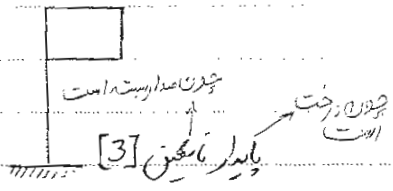 چون مدار بسته است
چون درخت
است
پایدار نامعین [3]